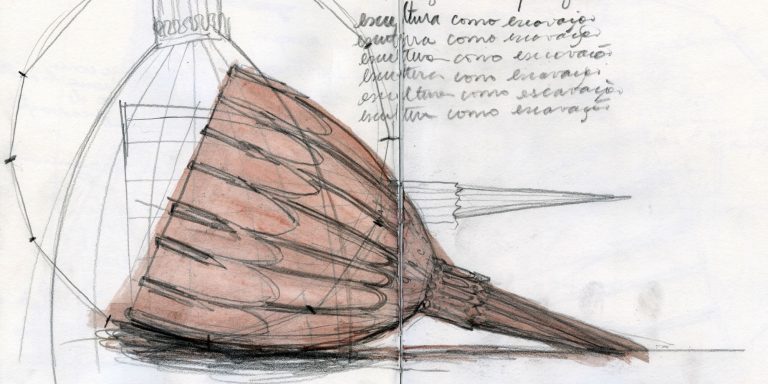 escultura como escavação
escultura como escavação
escultura como escavação
escultura como escavação
escultura como escavação
escultura como escavação